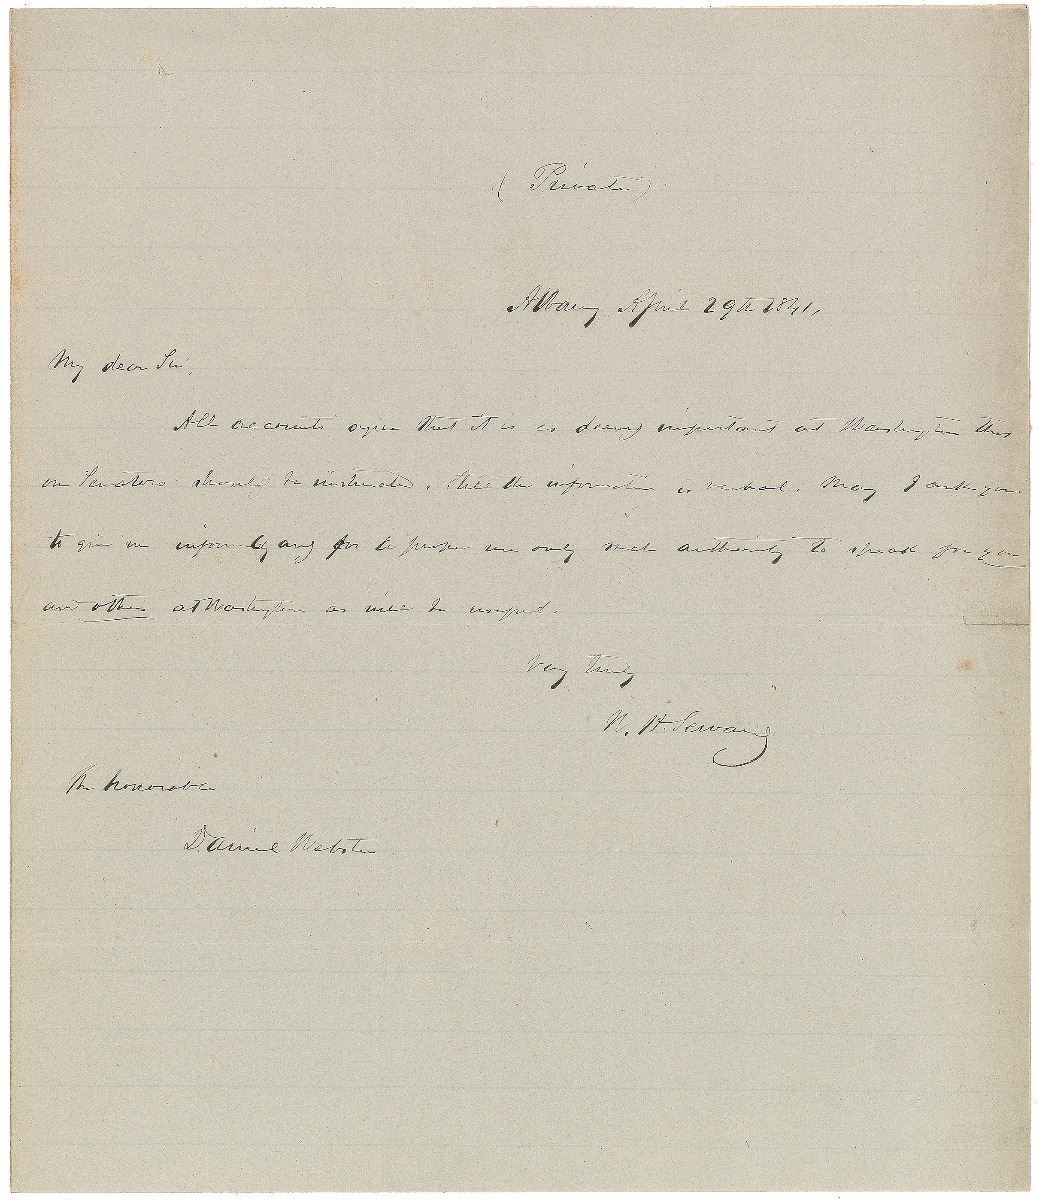 (Private)
Albany April 29th 1841,
My dear Sir,
All accounts agree that it is deemed important at Washington that
our Senators should be instructed. Still the information is verbal. May I ask you
to give me informally and for a proper use only such authority to speak for you
and others at Washington as will be
Very truly
W. H. Seward
The honorable
Daniel Webster